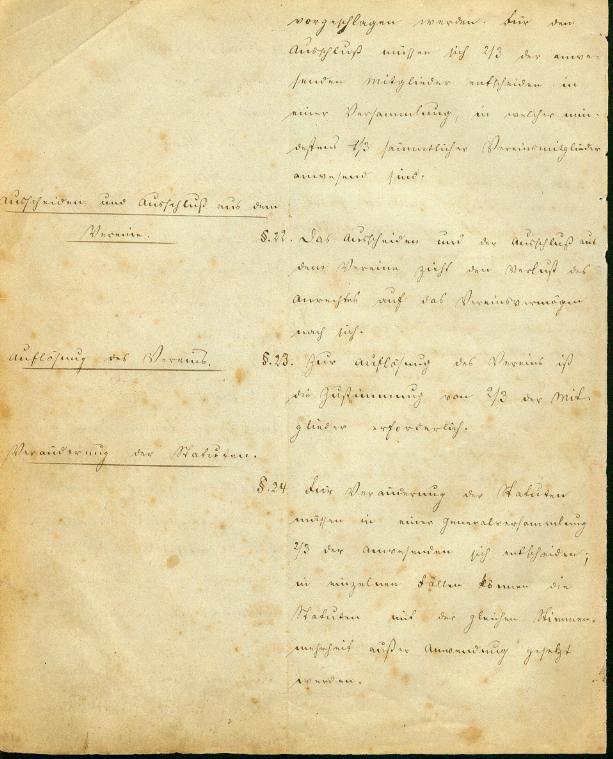 vorgeschlagen werden. Für den
Ausschluß müssen sich 2/3 der anwe-
senden Mitglieder entscheiden in
einer Versammlung, in welcher min-
destens 1/3 sämmtlicher Vereinsmitglieder
anwesend sind.
Ausscheiden und Ausschluß aus dem
Vereine.
§.22. Das Ausscheiden und der Ausschluß aus
dem Vereine zieht den Verlust des
Anrechtes auf das Vereinsvermögen
nach sich.
Auflösung des Vereins.
§.23. Zur Auflösung des Vereins ist
die Zustimmung von 2/3 der Mit-
glieder erforderlich.
Veränderung der Statuten.
§.24. Für Veränderung der Statuten
müssen in einer Generalversammlung
2/3 der Anwesenden sich entscheiden;
in einzelnen Fällen können die
Statuten mit der gleichen Stimmen-
mehrheit außer Anwendung gesetzt
werden.